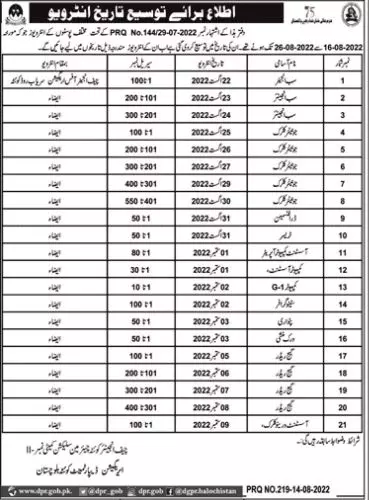 اطلاع برائے توسیع تاریخ انٹرویو
دفتر ہذا کے اشتہار نمبر PRQ No.144/29-07-2022 کے تحت مختلف پوسٹوں کے انٹرویوز جو کہ مورخہ
16-08-2022 سے 26-08-2022 کو ہونے تھے۔ ان کی تاریخ میں توسیع کر دی گئی ہے اب ان کے انٹرویوز مندرجہ ذیل تاریخوں میں لیے جائیں گے۔
نمبر شمار نام آسامی تاریخ انٹرویو سیریل نمبر بمقام انٹرویو
1 سب انجینئر 22 اگست 2022 1 تا 100 چیف انجینئر آفس ایریگیشن سریاب روڈ کوئٹہ
2 سب انجینئر 23 اگست 2022 101 تا 200 ایضاء
3 سب انجینئر 24 اگست 2022 201 تا 300 ایضاء
4 جونیئر کلرک 25 اگست 2022 1 تا 100 ایضاء
5 جونیئر کلرک 26 اگست 2022 101 تا 200 ایضاء
6 جونیئر کلرک 27 اگست 2022 201 تا 300 ایضاء
7 جونیئر کلرک 29 اگست 2022 301 تا 400 ایضاء
8 جونیئر کلرک 30 اگست 2022 401 تا 550 ایضاء
9 ڈرافٹسمین 31 اگست 2022 1 تا 50 ایضاء
10 ٹریسر 31 اگست 2022 1 تا 50 ایضاء
11 اسسٹنٹ کمپیوٹر آپریٹر 01 ستمبر 2022 1 تا 80 ایضاء
12 کمپیوٹر اسسٹنٹ 01 ستمبر 2022 1 تا 30 ایضاء
13 کمپیوٹر G-1 02 ستمبر 2022 1 تا 10 ایضاء
14 سٹینوگرافر 02 ستمبر 2022 1 تا 100 ایضاء
15 پٹواری 03 ستمبر 2022 1 تا 50 ایضاء
16 ورک منشی 03 ستمبر 2022 1 تا 50 ایضاء
17 گیج ریڈر 05 ستمبر 2022 1 تا 100 ایضاء
18 گیج ریڈر 06 ستمبر 2022 101 تا 200 ایضاء
19 گیج ریڈر 07 ستمبر 2022 201 تا 300 ایضاء
20 گیج ریڈر 08 ستمبر 2022 301 تا 400 ایضاء
21 اسسٹنٹ ورینگ کلرک 09 ستمبر 2022 1 تا 100 ایضاء
شرائط وضوابط سابقہ رہیں گی۔
چیف انجینئر کوئٹہ چیئرمین سلیکشن کمیٹی نمبر-II
ایریگیشن ڈیپارٹمنٹ کوئٹہ بلوچستان
PRQ NO.219-14-08-2022
www.dpr.gob.pk @dpr_gob @dpr_gob @dgpr.balochistan